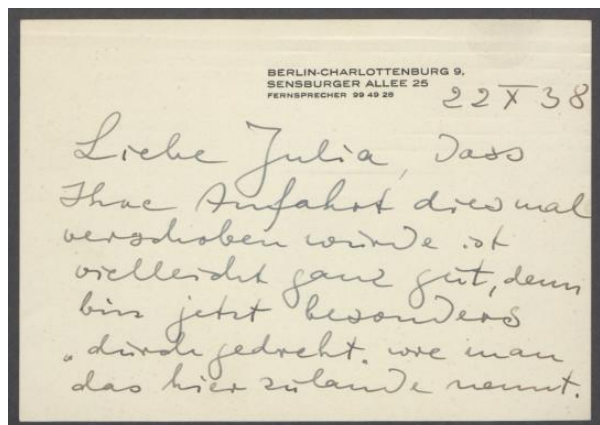 BERLIN-CHARLOTTENBURG 9,
SENSBURGER ALLEE 25
FERNSPRECHER 99 49 28
22 X 38
Liebe Julia, dass
Ihre Anfahrt diesmal
verschoben wurde ist
vielleicht ganz gut, denn
bin jetzt besonders
„durchgedreht„ wie man
das hier zulande nennt.